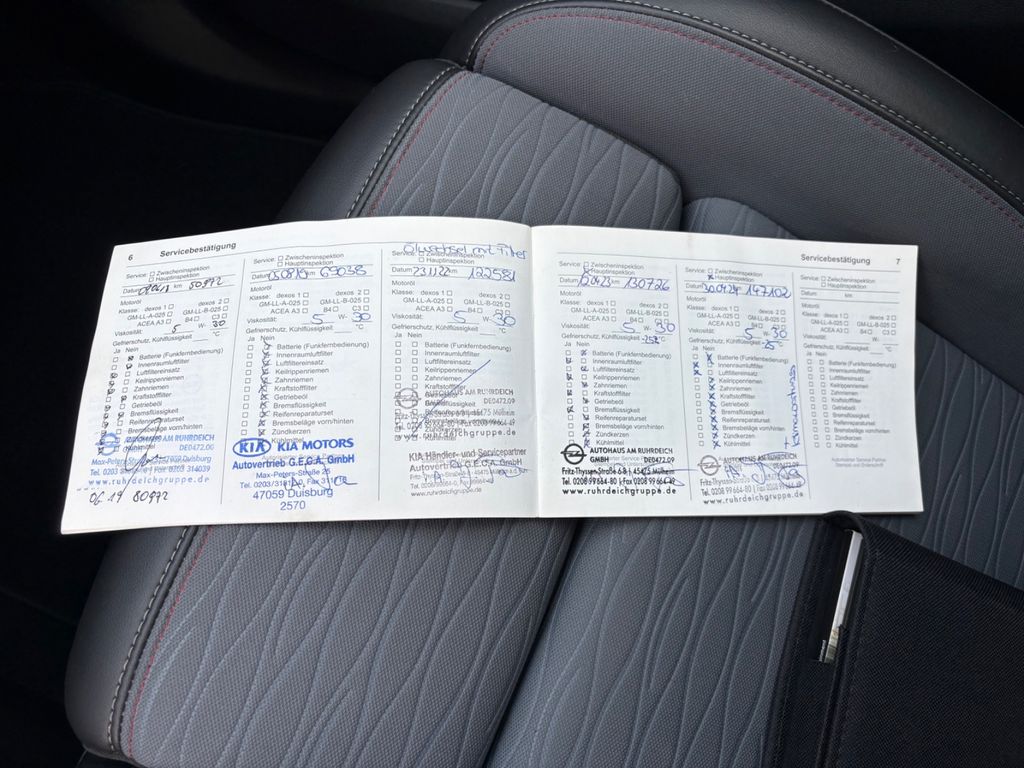 6 Servicebestätigung
Service: Zwischeninspektion
Hauptinspektion
Datum km 50972
Motoröl
Klasse: dexos 1 dexos 2
GM-LL-A-025 GM-LL-B-025
ACEA A3 B4 C3
Viskosität: 5 W- 30
Gefrierschutz, Kühlflüssigkeit °C
Ja Nein
Batterie (Funkfernbedienung)
Innenraumluftfilter
Luftfiltereinsatz
Keilrippenriemen
Zahnriemen
Kraftstofffilter
Getriebeöl
Bremsflüssigkeit
Reifenreparaturset
Bremsbeläge vorn/hinten
Zündkerzen
Kühlmittel
AUTOHAUS AM RUHRDEICH
DE0472.00
www.ruhrdeichgruppe.de
Service: Zwischeninspektion
Hauptinspektion
Datum km 69038
Motoröl
Klasse: dexos 1 dexos 2
GM-LL-A-025 GM-LL-B-025
ACEA A3 B4 C3
Viskosität: 5 W- 30
Gefrierschutz, Kühlflüssigkeit °C
Ja Nein
Batterie (Funkfernbedienung)
Innenraumluftfilter
Luftfiltereinsatz
Keilrippenriemen
Zahnriemen
Kraftstofffilter
Getriebeöl
Bremsflüssigkeit
Reifenreparaturset
Bremsbeläge vorn/hinten
Zündkerzen
Kühlmittel
KIA KIA MOTORS
Autovertrieb G.E.G.A. GmbH
Max-Peters-Straße 26
47059 Duisburg
2570
Ölwechsel mit Filter
Service: Zwischeninspektion
Hauptinspektion
Datum 23.11.22 km 122581
Motoröl
Klasse: dexos 1 dexos 2
GM-LL-A-025 GM-LL-B-025
ACEA A3 B4 C3
Viskosität: 5 W- 30
Gefrierschutz, Kühlflüssigkeit °C
Ja Nein
Batterie (Funkfernbedienung)
Innenraumluftfilter
Luftfiltereinsatz
Keilrippenriemen
Zahnriemen
Kraftstofffilter
AUTOHAUS AM RUHRDEICH
DE0472.09
www.ruhrdeichgruppe.de
KIA Händler- und Servicepartner
Autovertrieb G.E.G.A. GmbH
www.ruhrdeichgruppe.de
Servicebestätigung 7
Service: Zwischeninspektion
Hauptinspektion
Datum km 130726
Motoröl
Klasse: dexos 1 dexos 2
GM-LL-A-025 GM-LL-B-025
ACEA A3 B4 C3
Viskosität: 5 W- 30
Gefrierschutz, Kühlflüssigkeit -25 °C
Ja Nein
Batterie (Funkfernbedienung)
Innenraumluftfilter
Luftfiltereinsatz
Keilrippenriemen
Zahnriemen
Kraftstofffilter
Getriebeöl
Bremsflüssigkeit
Reifenreparaturset
Bremsbeläge vorn/hinten
Zündkerzen
Kühlmittel
AUTOHAUS AM RUHRDEICH
GMBH DE0472.09
Fritz-Thyssen-Straße 6-8 | 45475 Mülheim
Tel. 0208 99 664-80 | Fax 0208 99 664
www.ruhrdeichgruppe.de
Service: Zwischeninspektion
Hauptinspektion
Datum km 147102
Motoröl
Klasse: dexos 1 dexos 2
GM-LL-A-025 GM-LL-B-025
ACEA A3 B4 C3
Viskosität: 5 W- 30
Gefrierschutz, Kühlflüssigkeit -25 °C
Ja Nein
Batterie (Funkfernbedienung)
Innenraumluftfilter
Luftfiltereinsatz
Keilrippenriemen
Zahnriemen
Kraftstofffilter
Getriebeöl
Bremsflüssigkeit
Reifenreparaturset
Bremsbeläge vorn/hinten
Zündkerzen
Kühlmittel
www.ruhrdeichgruppe.de
Service: Zwischeninspektion
Hauptinspektion
Datum km
Motoröl
Klasse: dexos 1 dexos 2
GM-LL-A-025 GM-LL-B-025
ACEA A3 B4 C3
Viskosität: W-
Gefrierschutz, Kühlflüssigkeit °C
Ja Nein
Batterie (Funkfernbedienung)
Innenraumluftfilter
Luftfiltereinsatz
Keilrippenriemen
Zahnriemen
Kraftstofffilter
Getriebeöl
Bremsflüssigkeit
Reifenreparaturset
Bremsbeläge vorn/hinten
Zündkerzen
Kühlmittel
Autorisierter Service Partner
Stempel und Unterschrift